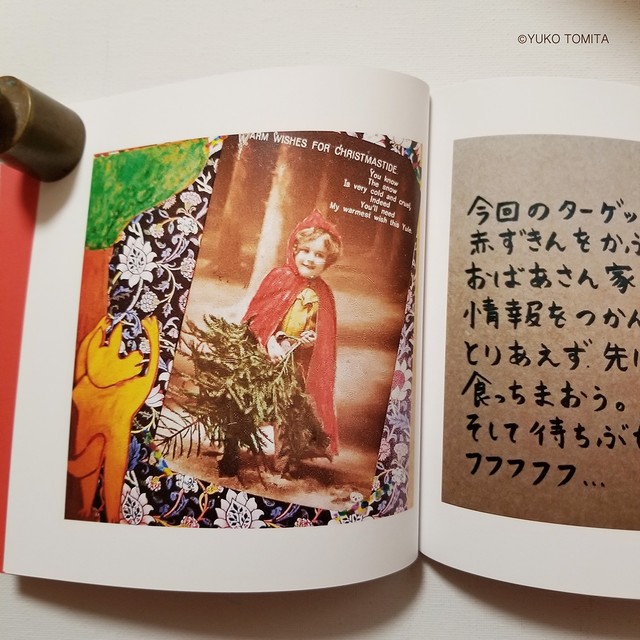 ©YUKO TOMITA
ARM WISHES FOR CHRISTMASTIDE.
You know
The snow
Is very cold and cruel,
Indeed
You'll need
My warmest wish this Yule.
今回のターゲッ
赤ずきんをか
おばあさん家
情報をつかん
とりあえず、先に
食っちまおう。
そして待ちぶ
フフフフフ...